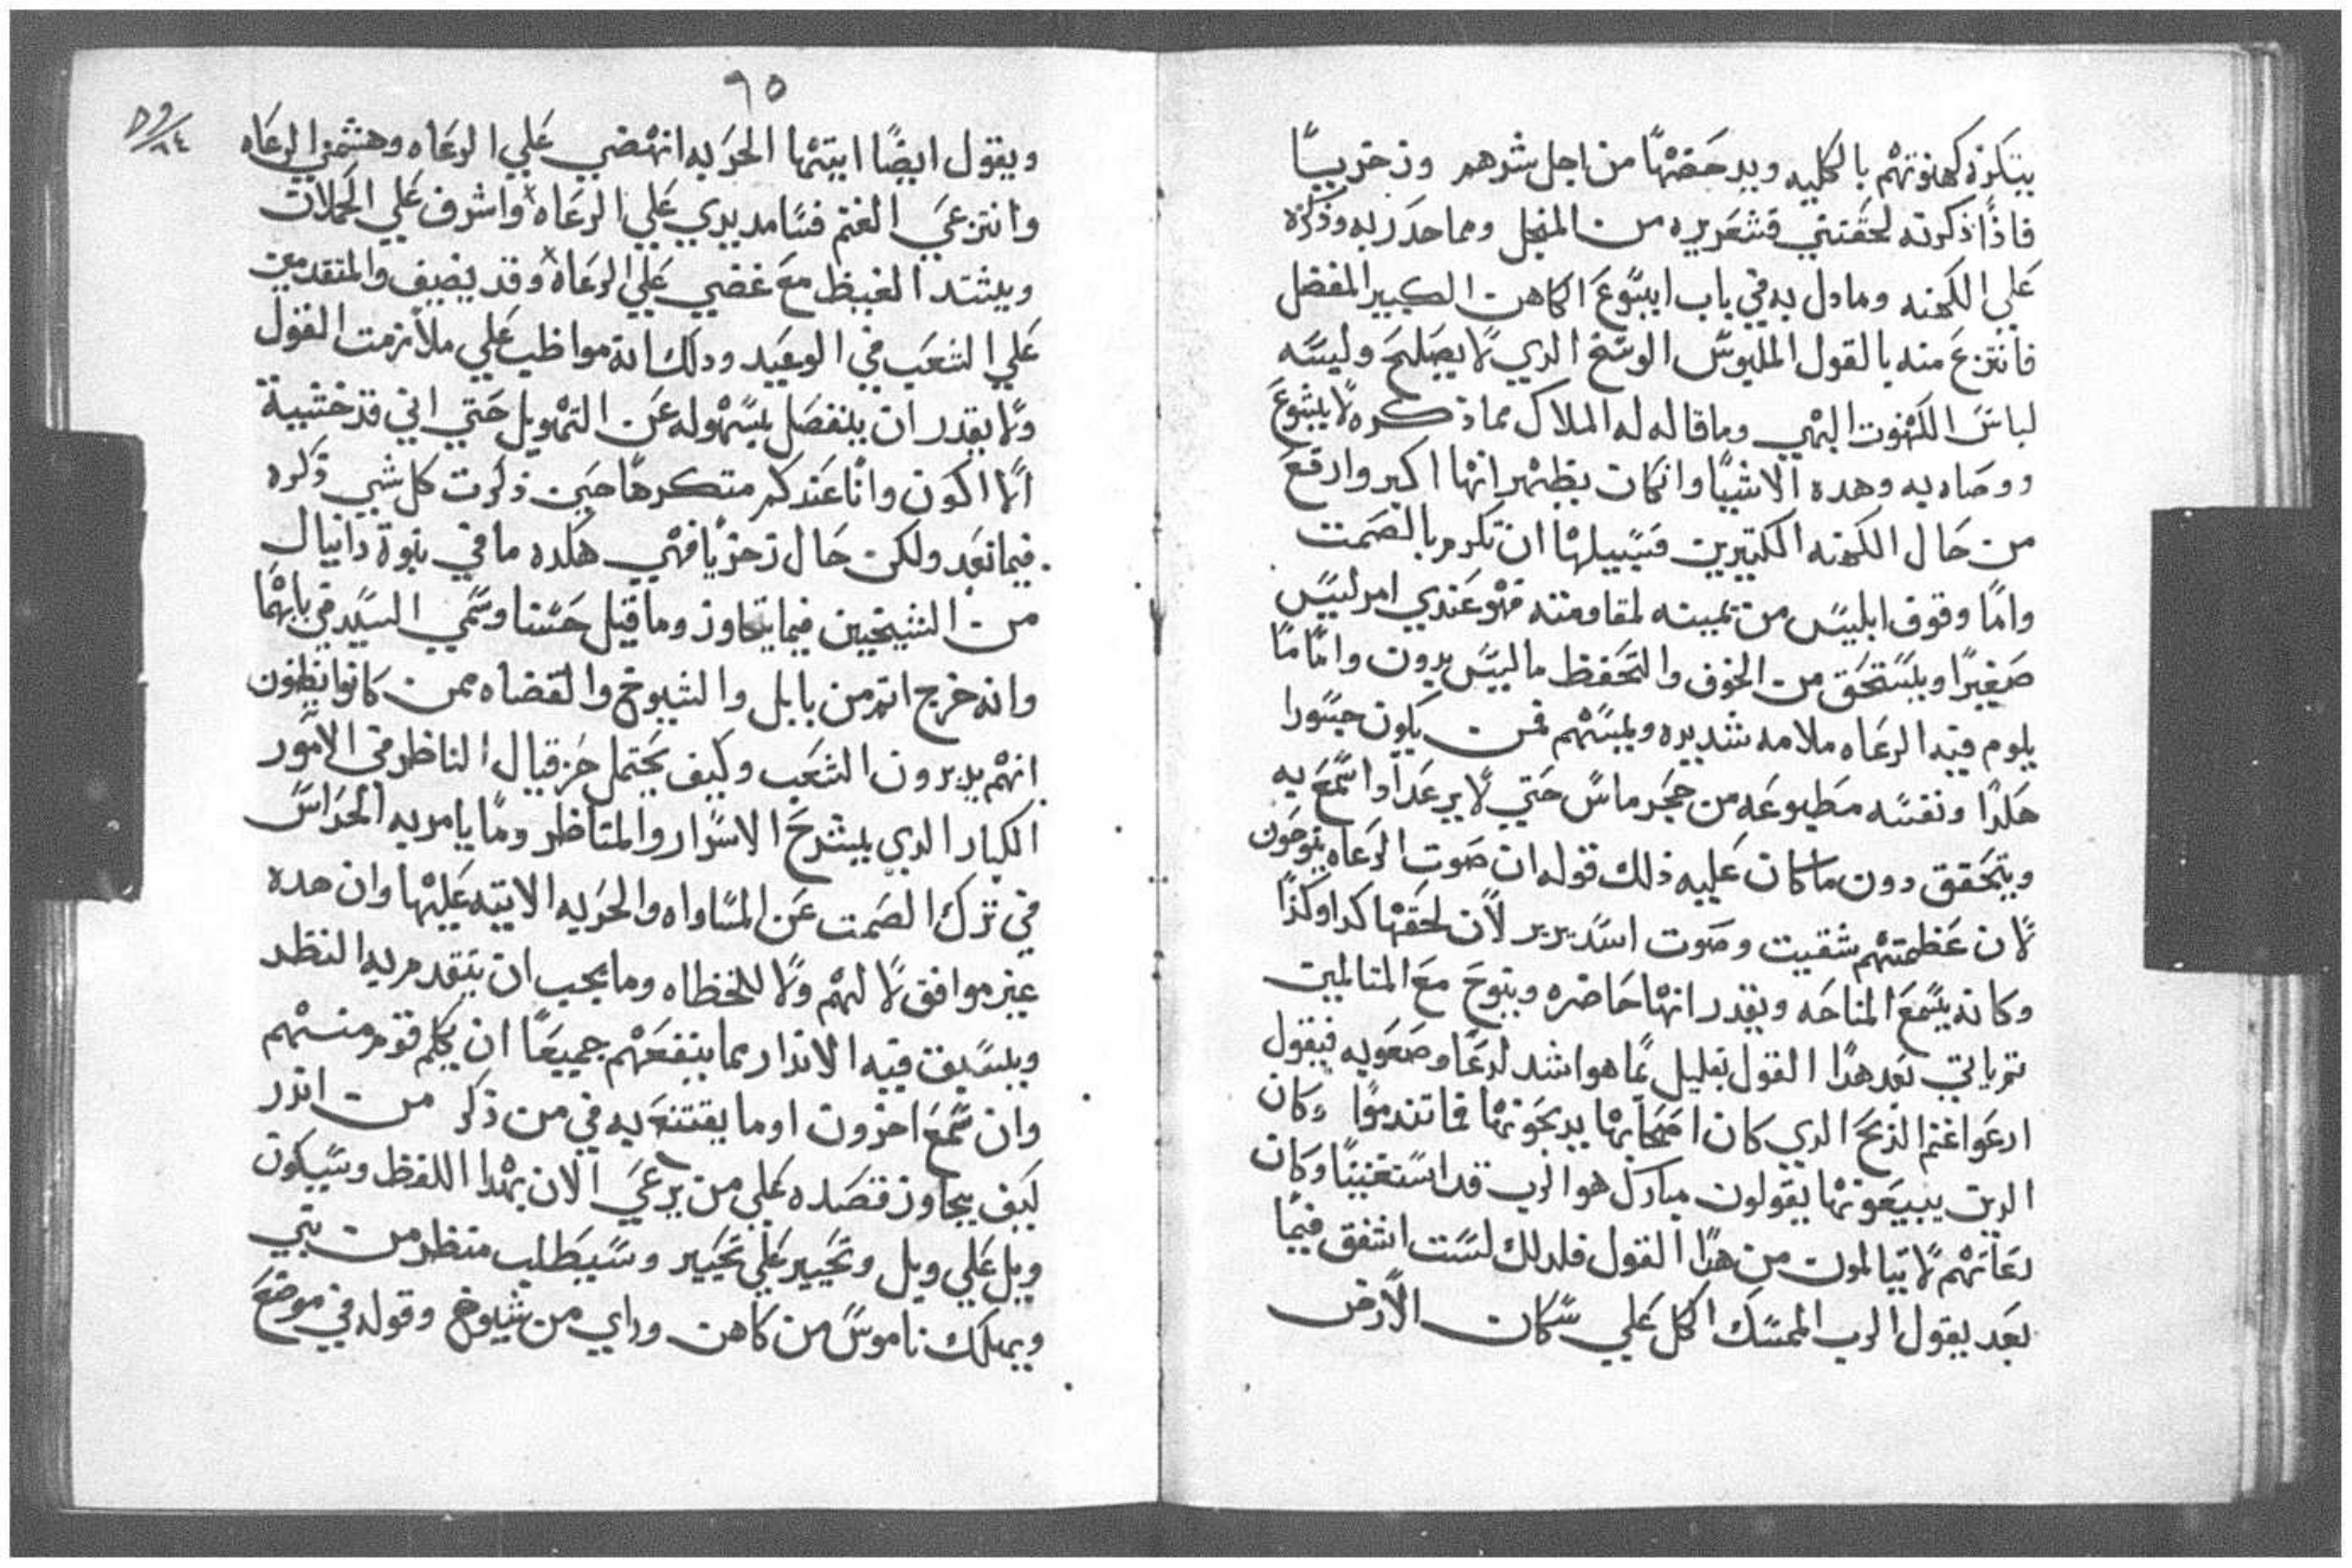 يتكره كهنوتهم بالكليه ويدحضها من اجل شرهم وزخريسًا
فاذًا ذكرته لحقتني قشعريره من المنجل ومما حدر به وذكره
علي الكهنه وما دل به في باب ايسوع الكاهن الكبير المفضل
فانتزع منه بالقول الملبوس الوسخ الدي لا يصلح وليسه
لباس الكهنوت البهي وما قاله له الملاك مما ذكره لا يشوع
ووصاه به وهده الاشيا وان كان يظهر انها اكبر وارفع
من حال الكهنه الكتيرين فسبيلها ان تكرم بالصمت
واما وقوف ابليس من يمينه لمقاومته فهو عندي امر ليس
صغيرًا ويستحق من الخوف والتحفظ ما ليس بدون واما ما
يلوم فيه الرعاه ملامه شديده ويمسهم فمن يكون جسورا
هكدا ونفسه مطبوعه من حجر ماس حتي لا يرعد اذا سمع به
ويتحقق دون ما كان عليه ذلك قوله ان صوت الرعاه ينوحون
لان عظمتهم شقيت وصوت اسد يرير لان لحقها كدا وكذا
وكانه يسمع المناحه ويقدر انها حاضره وينوح مع المتالمين
تم ياتي بعد هدا القول بقليل بما هو اشد لدعًا وصعوبه فيقول
ارعوا غنم الذبح الدي كان اصحابها يدبحونها فما تندموا وكان
الدين يبيعونها يقولون مبارك هو الرب قد استغنينا وكان
رعاتهم لا يتالمون من هدا القول فلدلك لست اشفق فيما
بعد يقول الرب الممسك الكل علي سكان الارض
٦٥
ويقول ايضًا ايتها الحربه انهضي علي الرعاه وهشمي الرعاه
وانتزعي الغنم فسا مد يدي علي الرعاه واشرف علي الحملان
ويشتد الغيظ مع غضبي علي الرعاه وقد يضيف والمتقدمين
علي الشعب في الوعيد ودلك انه مواظب علي ملازمت القول
ولا يقدر ان ينفصل بسهوله عن التهويل حتي اني قد خشيت
الا اكون وانا عندكم متكرها حين ذكرت كل شي ذكره
فيما بعد ولكن حال زخريا فهي هكده ما في نبوة دانيال
من الشيخين فيما يتجاوز وما قيل حسنا وسمي السيد في بابهما
وانه خرج اتم من بابل والشيوخ والقضاه ممن كانوا يظنون
انهم يدبرون الشعب وكيف يحتمل حزقيال الناظر في الامور
الكبار الدي يشرح الاسرار والمناظر وما يامر به الحراس
في ترك الصمت عن المساواه والحربه الاتيه عليها وان هده
غير موافق لا لهم ولا للخطاه وما يجب ان يتقدم به النظر
ويسبق فيه الاندار مما ينفعهم جميعًا ان يكلم قوم منهم
وان سمع اخرون او ما يقتنع به في من ذكر من اندر
كيف يجاوز قصده علي من يرعي الان بهدا اللفظ وسيكون
ويل علي ويل وتحيير علي تحيير وسيطلب منظر من نبي
ويهلك ناموس من كاهن وراي من شيوخ وقوله في موضع